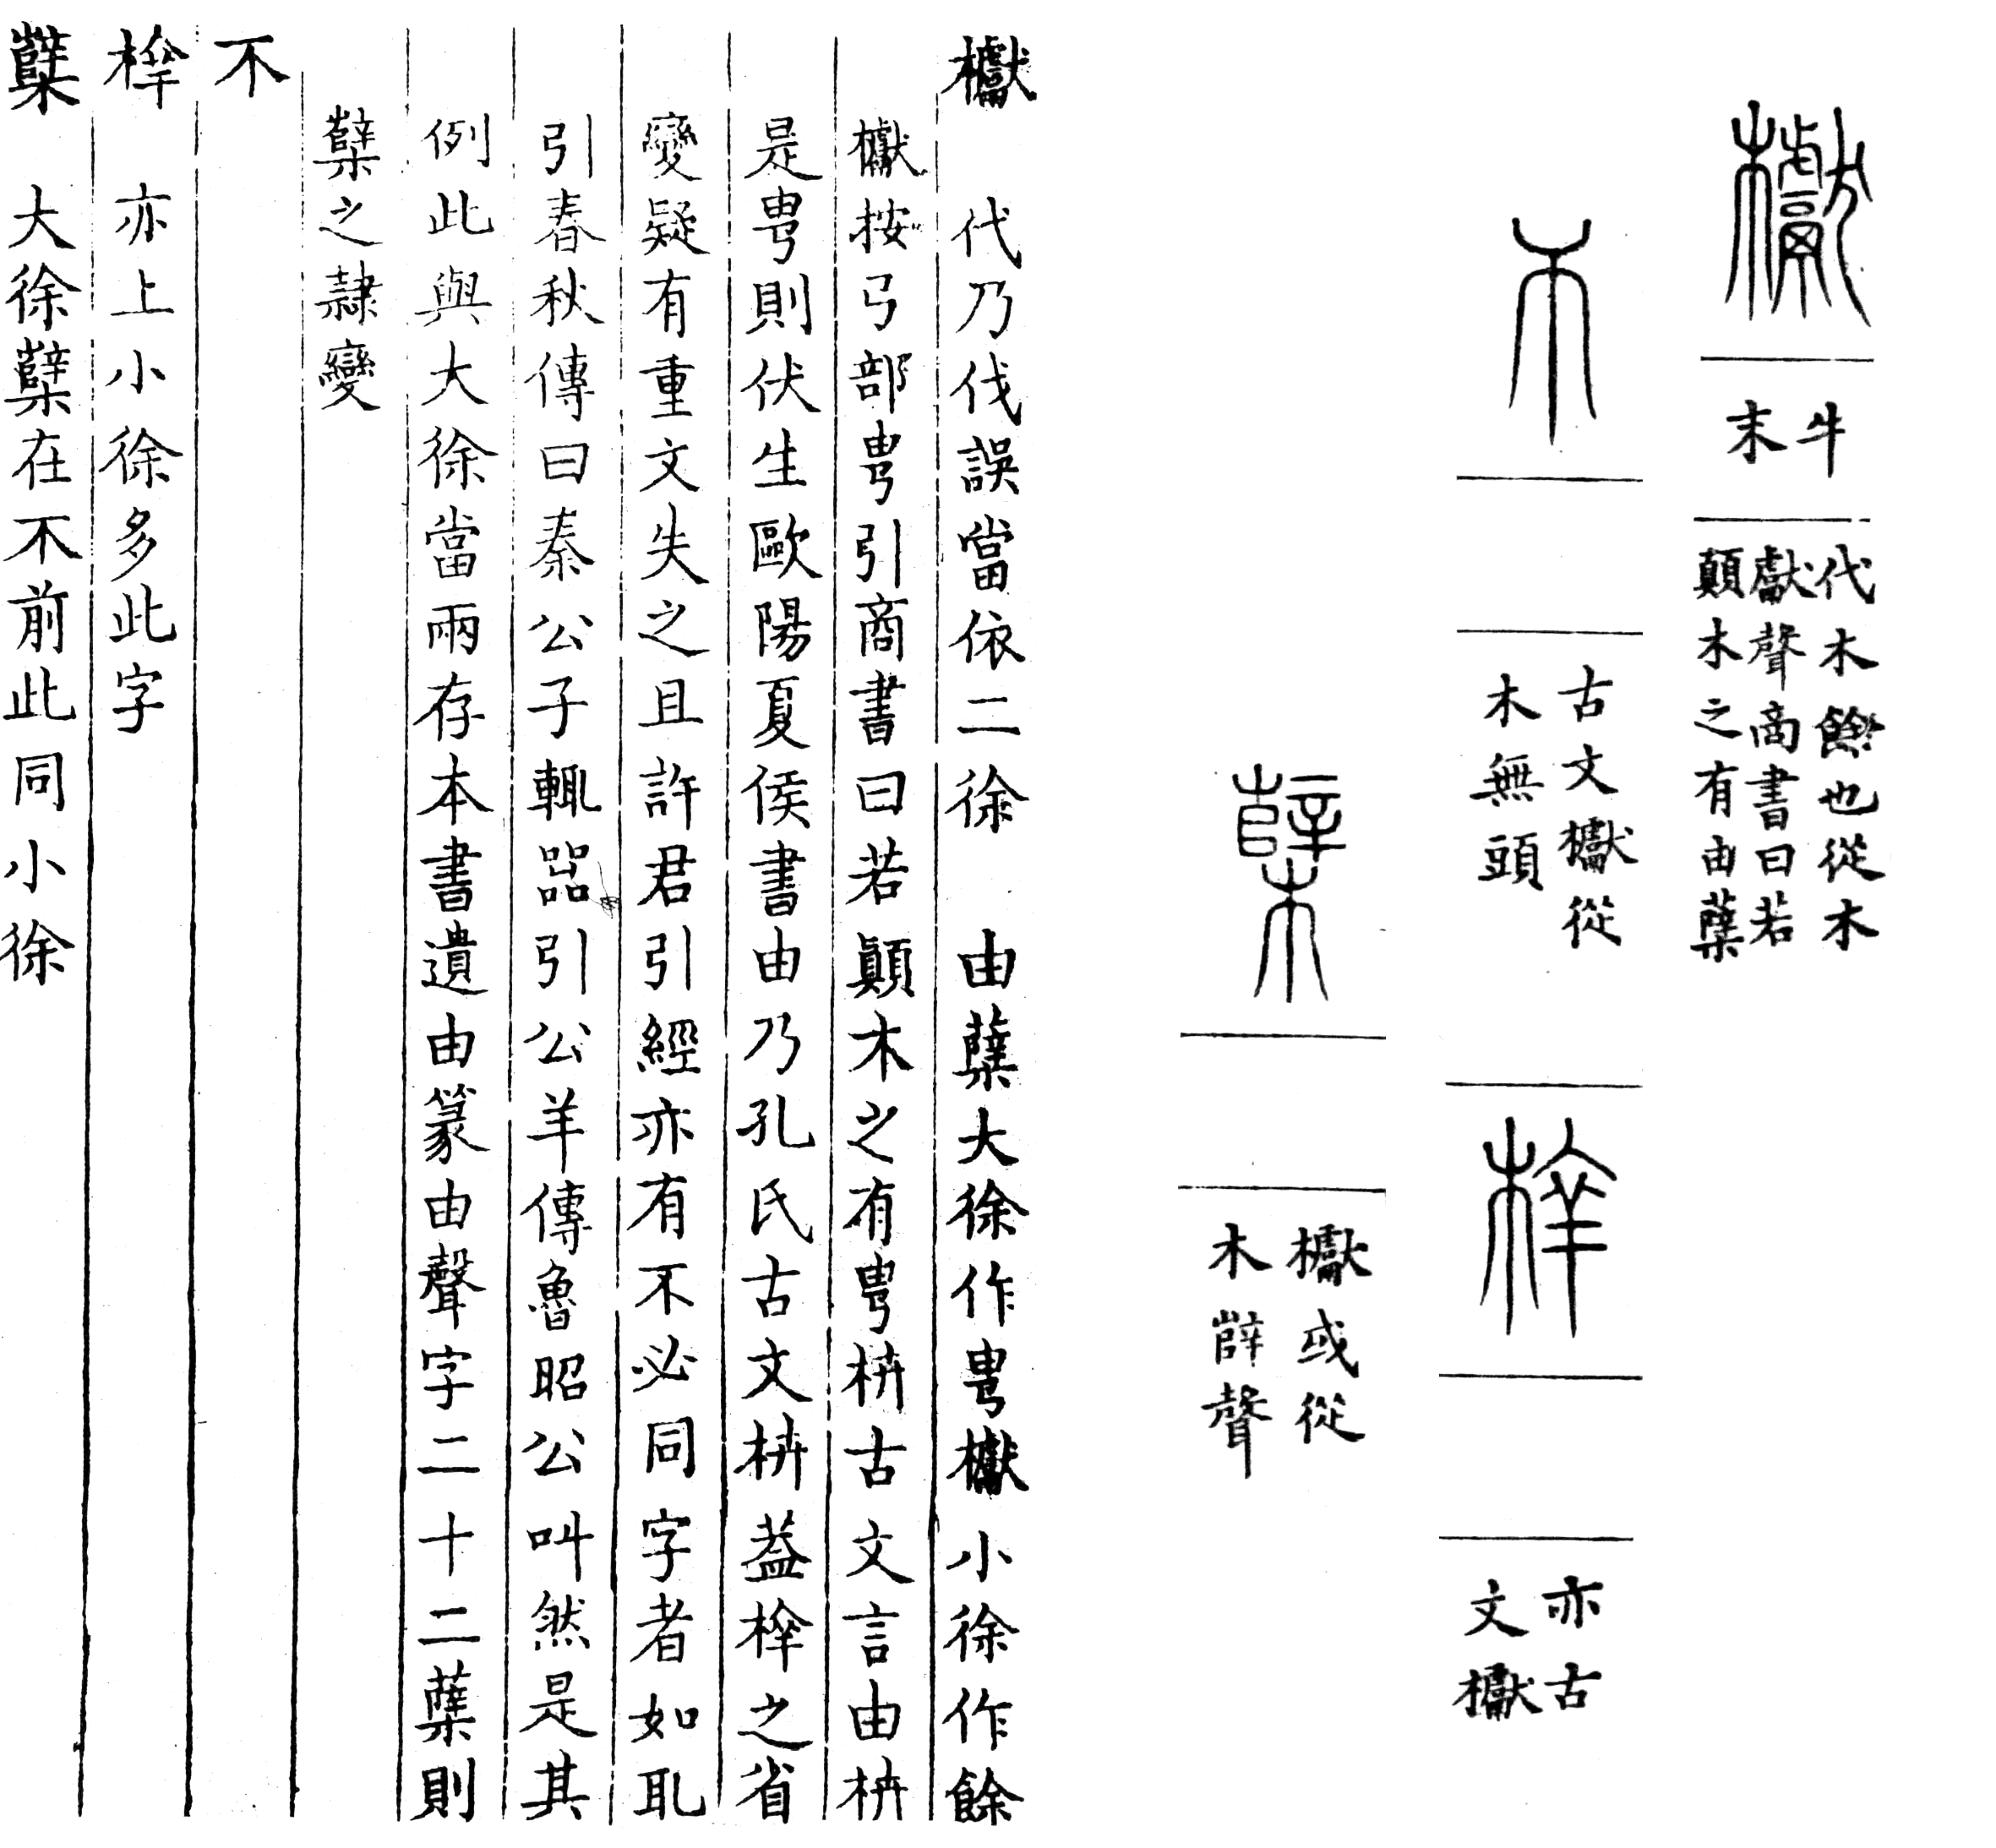 𣡌
牛
末
代木餘也從木
獻聲商書曰若
顛木之有由蘖
不
古文𣡌從
木無頭
亦古
文𣡌
櫱
𣡌或從
木辥聲
𣡌 代乃伐誤當依二徐 由蘖大徐作㽕𣡌小徐作餘
𣡌按弓部㽕引商書曰若顛木之有㽕枿古文言由枿
是㽕則伏生歐陽夏侯書由乃孔氏古文枿葢之省
變疑有重文失之且許君引經亦有不必同字者如耴
引春秋傳曰秦公子輒㗊引公羊傳魯昭公叫然是其
例此與大徐當兩存本書遺由篆由聲字二十二蘖則
櫱之隸變
不
亦上小徐多此字
櫱 大徐櫱在不前此同小徐